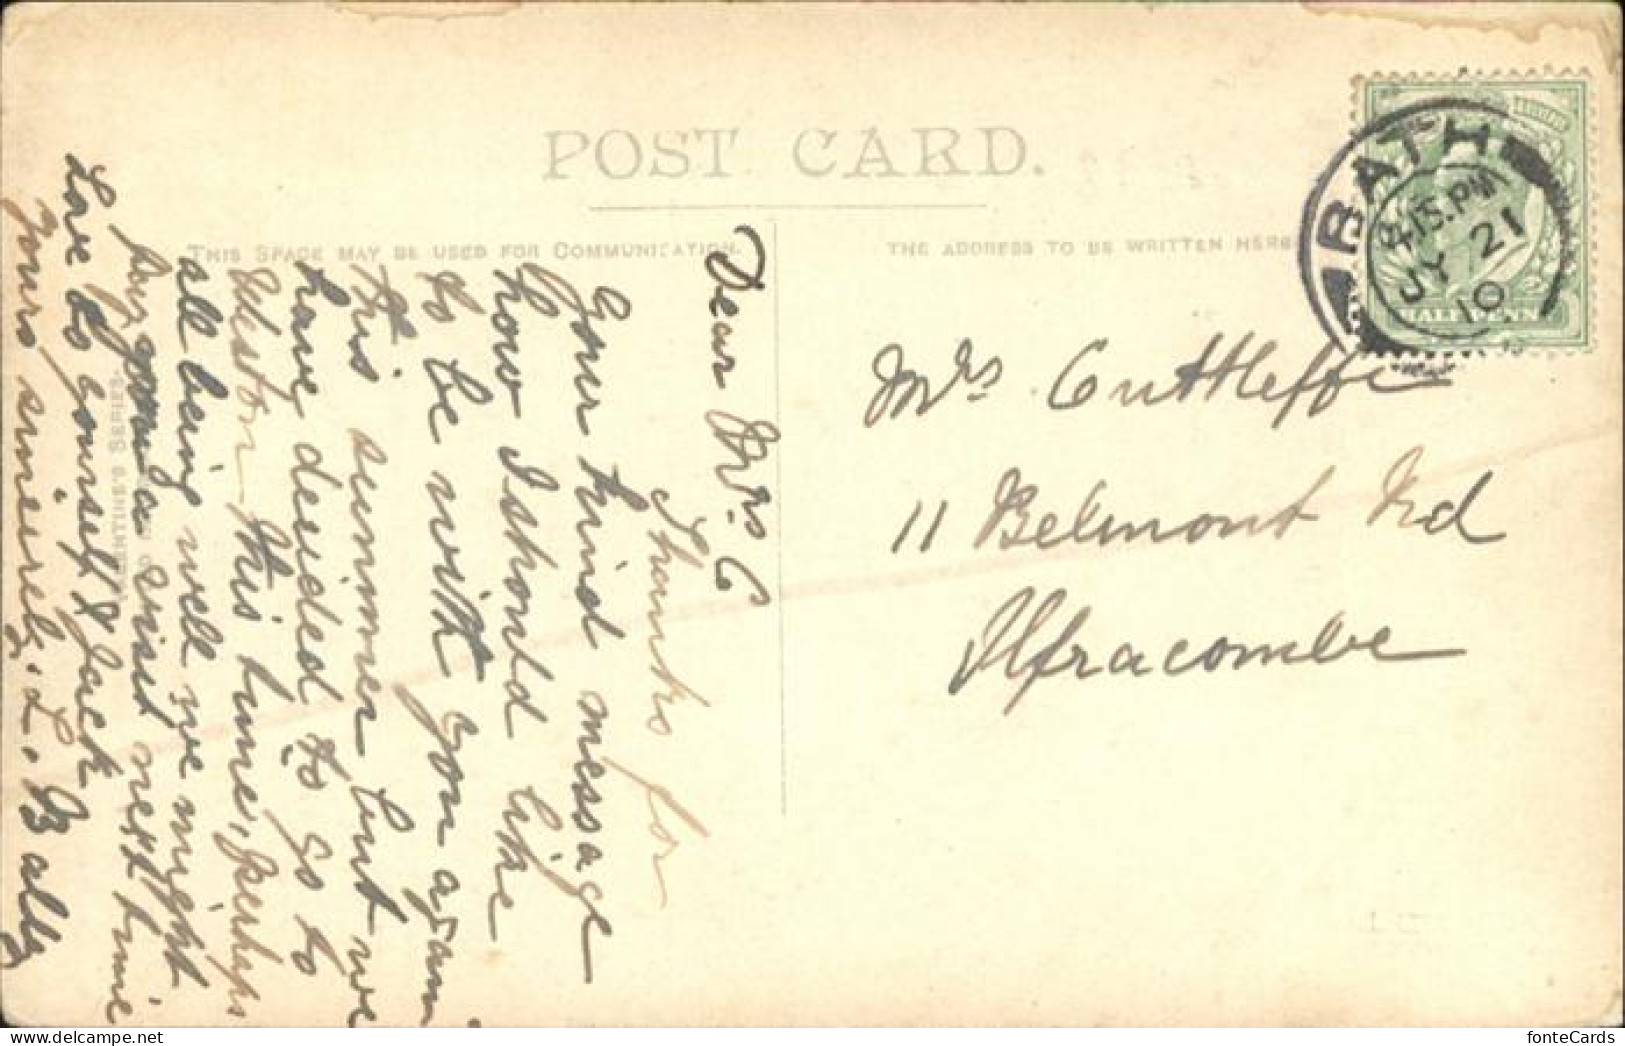 POST CARD.
THIS SPACE MAY BE USED FOR COMMUNICATION.
THE ADDRESS TO BE WRITTEN HERE
BATH
8.15.PM
JY 21
10
HALFPENNY
Dear Mrs C
Thanks for
Your kind message
how I should like
to be with you again
this summer but we
have decided to go to
Weston this time, perhaps
all being well we might
pay you a visit next time
Love to yourself & Jack
Yours sincerely, L.
Mrs Cuttleffe
11 Belmont Rd
Ilfracombe
VALENTINE'S SERIES
fonteCards